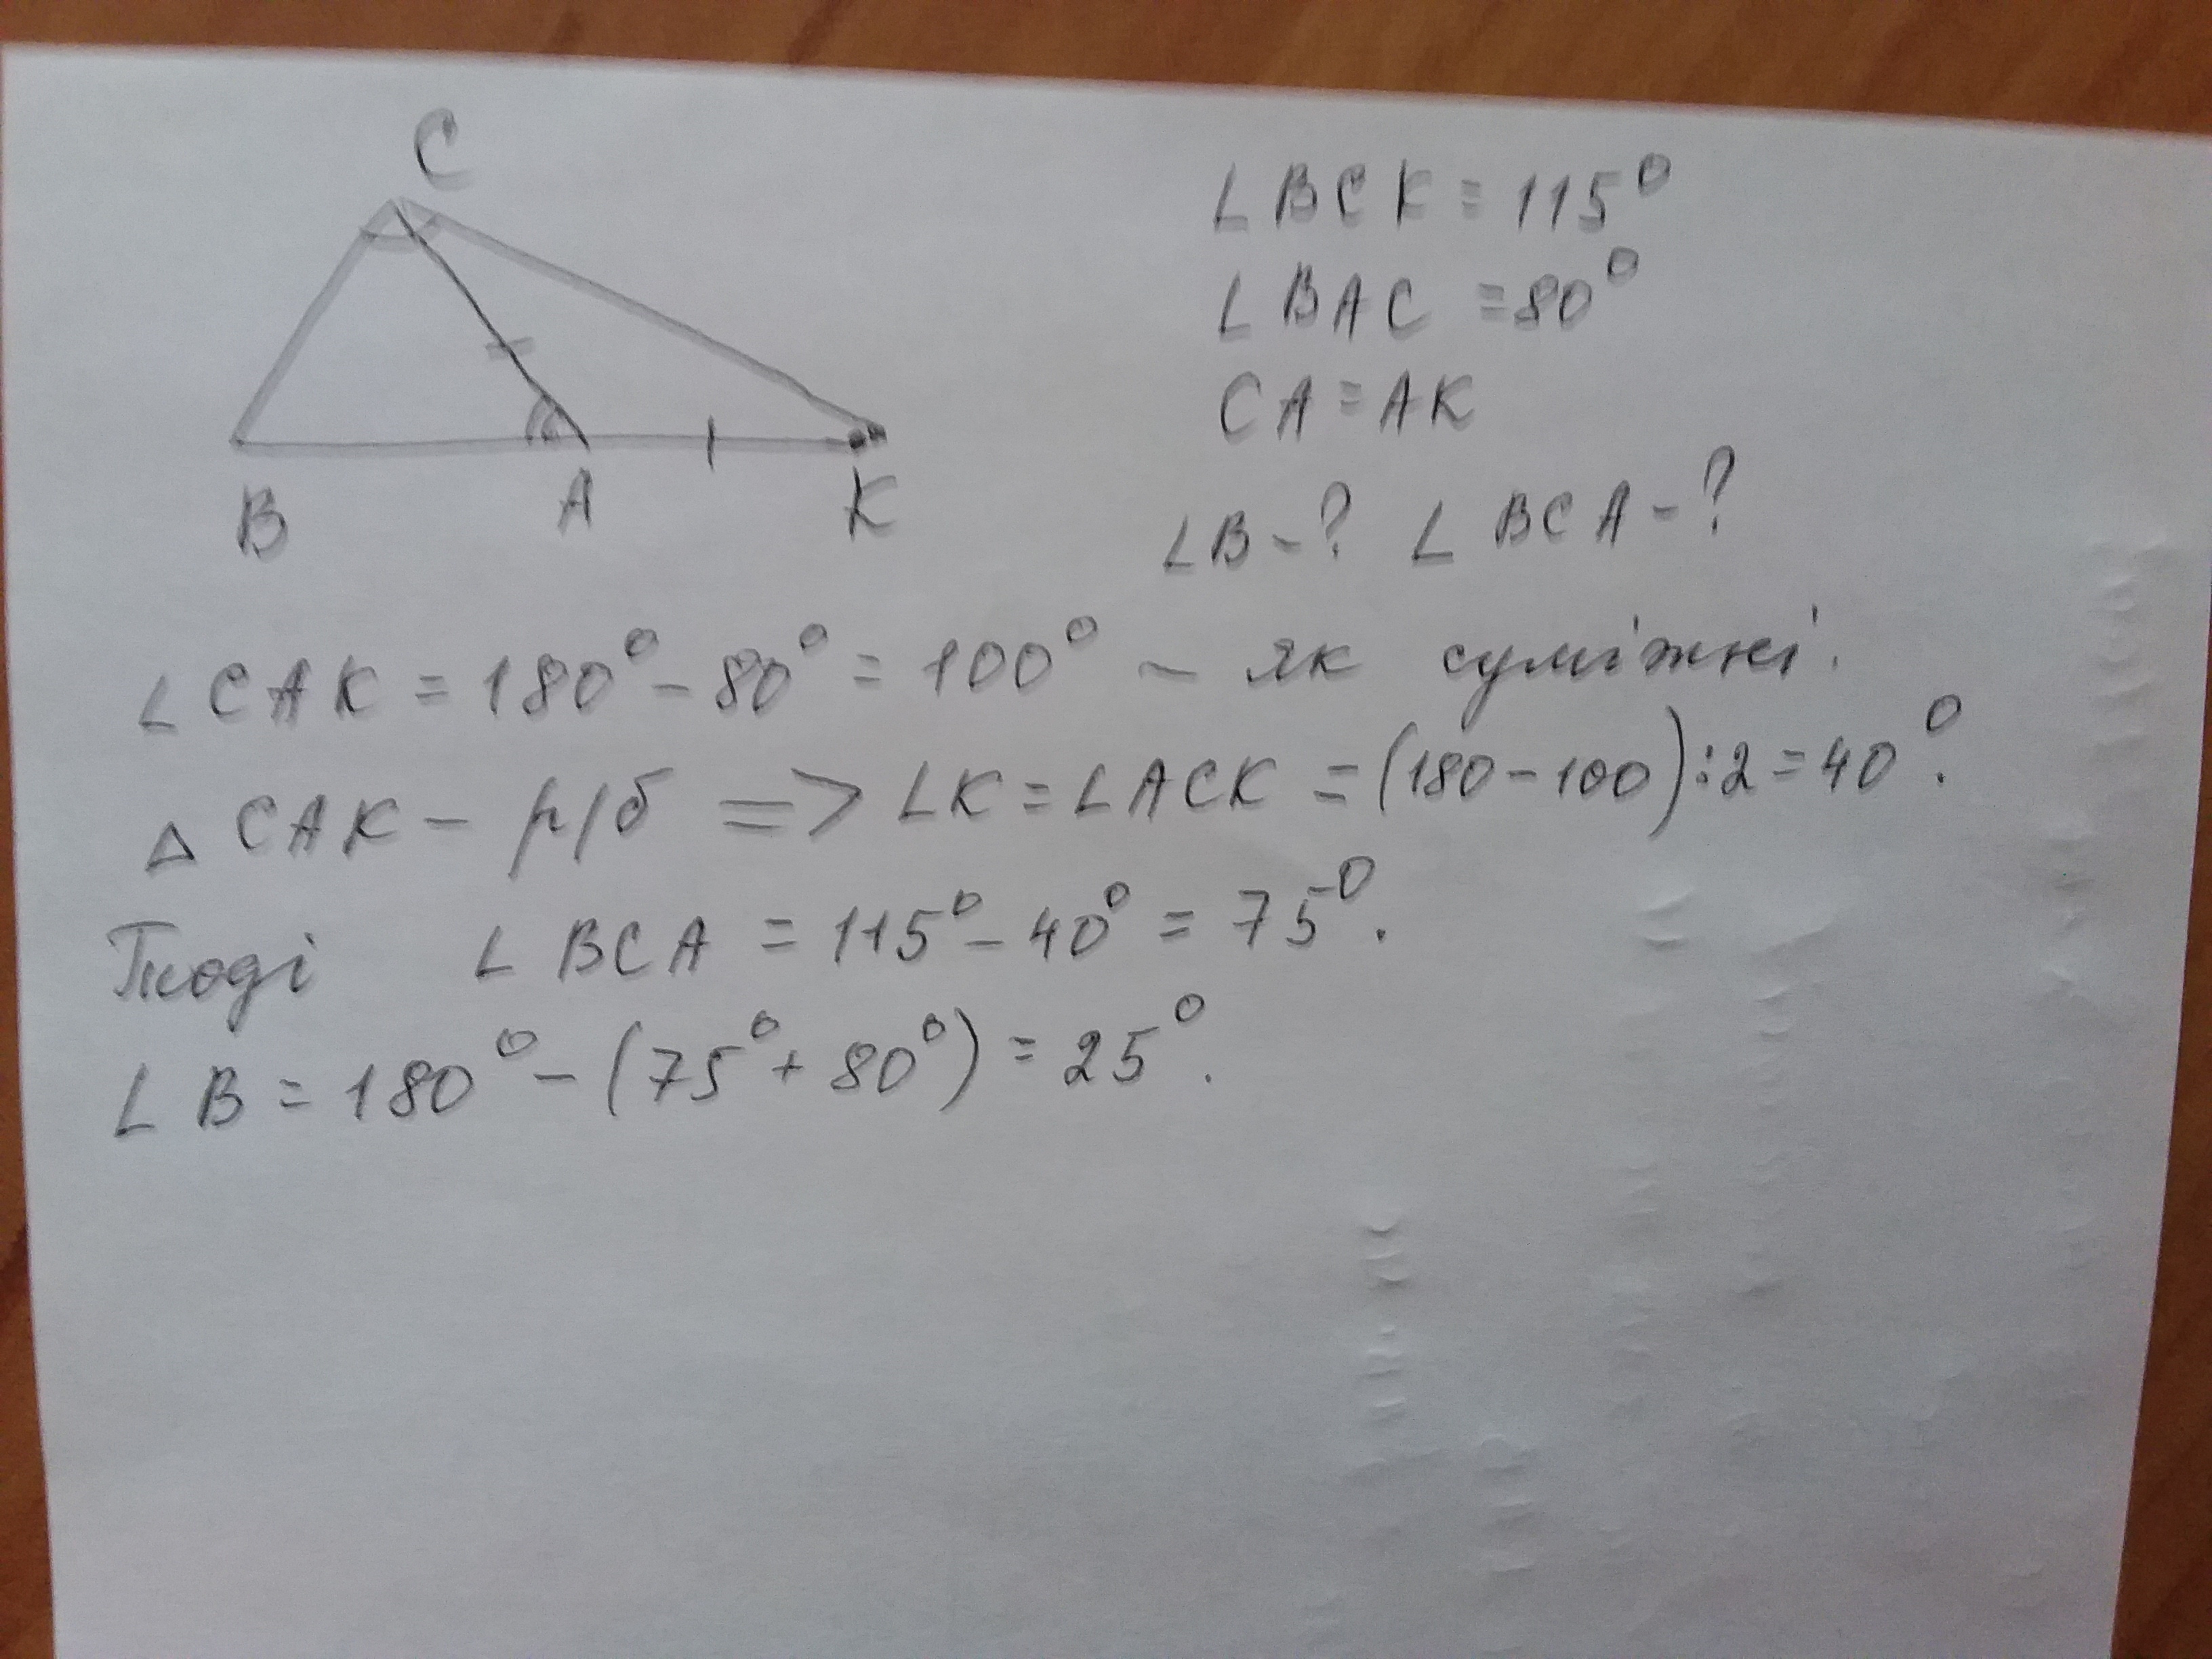 C
B
A
K
∠BCK = 115°
∠BAC = 80°
CA = AK
∠B - ? ∠BCA - ?
∠CAK = 180° - 80° = 100° - як суміжні.
△CAK - р/б => ∠K = ∠ACK = (180 - 100) : 2 = 40°.
Тоді ∠BCA = 115° - 40° = 75°.
∠B = 180° - (75° + 80°) = 25°.